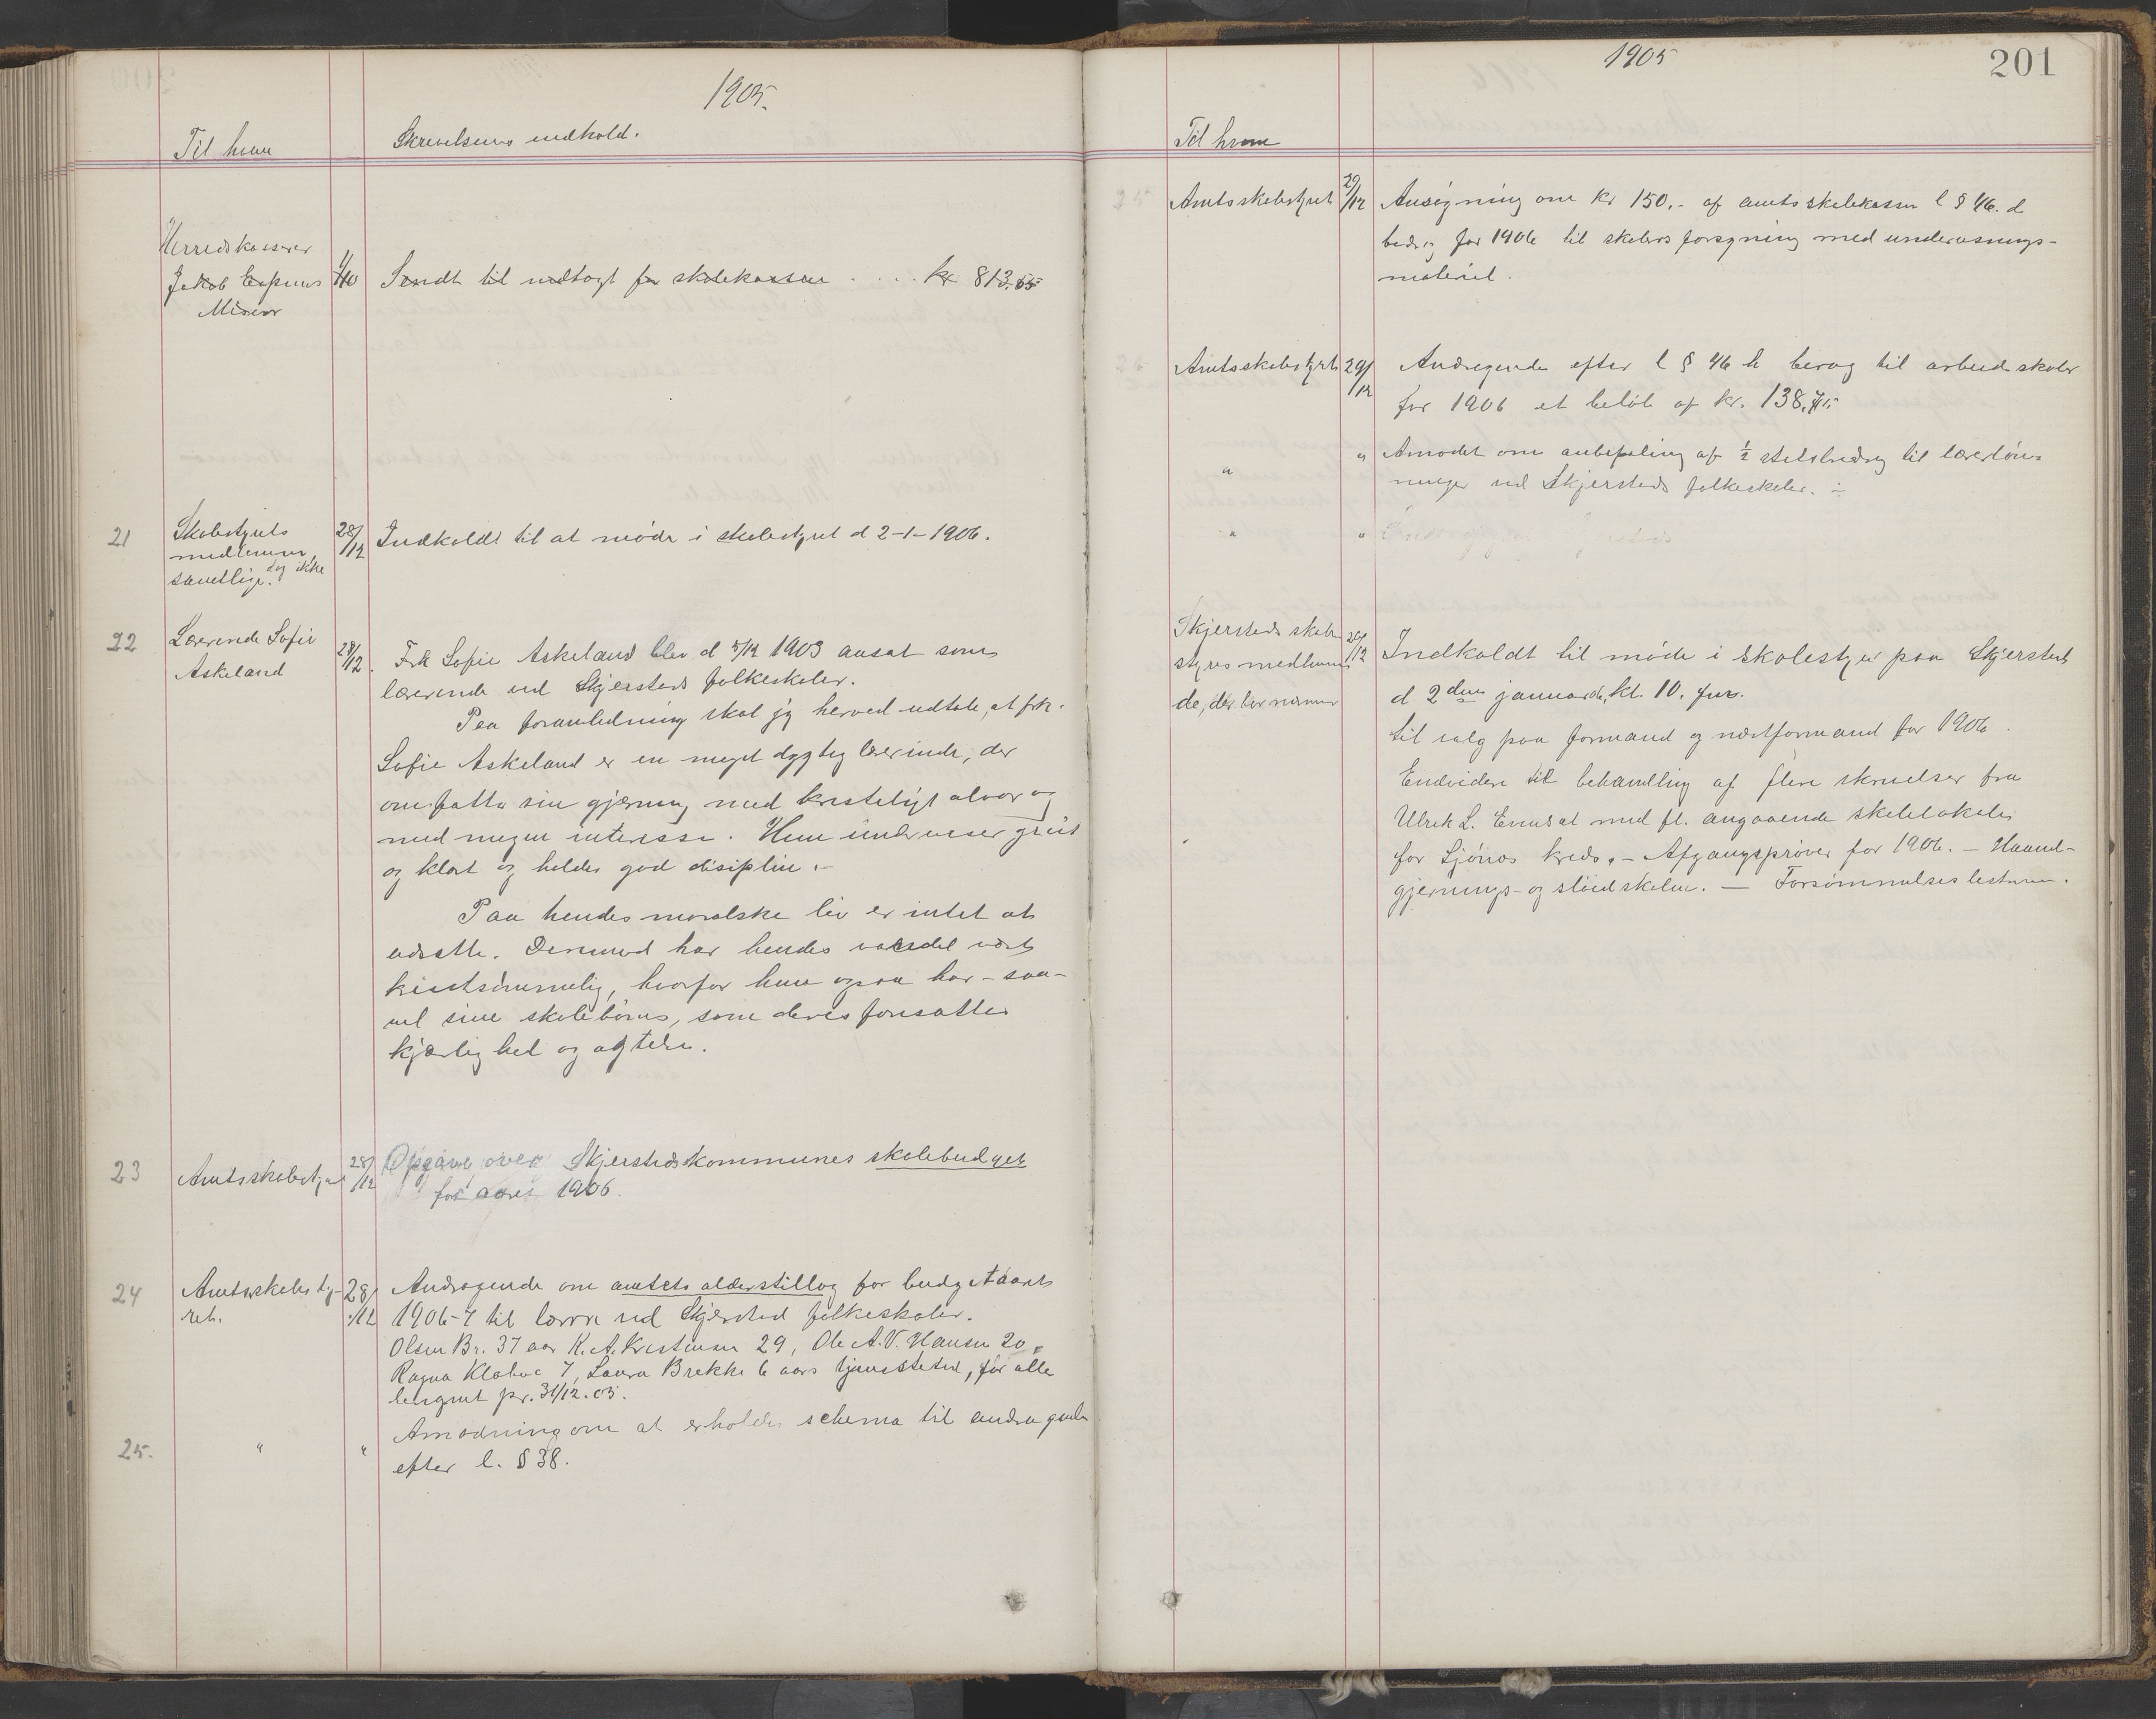 1905.
Til hvem
Skrivelsens indhold.
Herredskasserer
Jakob Espenes
Misvær
1/10
Sendt til indtægt for skolekassen .... kr 813.55
21
Skolestyrets
medlemmer,
dog ikke
samtlige.
28/12
Indkaldt til at møde i skolestyret d 2-1-1906.
22
Lærerinde Sofie
Askeland
28/12.
Frk Sofie Askeland blev d 5/12 1903 ansat som
lærerinde ved Skjersteds folkeskoler.
Paa foranledning skal jg herved udtale, at frk.
Sofie Askeland er en meget dygtig lærerinde, der
omfatter sin gjerning med kristeligt alvor og
med megen interesse. Hun underviser greit
og klart og holder god disiplin.-
Paa hendes moralske liv er intet at
udsætte. Derimod har hendes vandel vært
kristsømmelig, hvorfor hun ogsaa har - saa-
vel sine skolebørns, som deres foresattes
kjærlighed og agtelse.
23
Amtsskolestyret
28/12
Opgave over Skjerstedskommunes skolebudget
for aaret 1906.
24
Amtsskolesty-
ret.
28/12
Andragende om amtets alderstillæg for budgetaaret
1906-7 til lærere ved Skjersted folkeskoler.
Olsen Br. 37 aar K. A. Kristensen 29, Ole A. V. Hansen 20,
Ragna 7, Laura Brekke 6 aars tjenestetid, for alle
beregnet pr. 31/12.05.
25.
"
"
Anmodning om at erholde schema til andragende
efter l. § 38.
1905
201
Til hvem
25
Amtsskolestyret
29/12
Ansøgning om kr 150.- af amtsskolekassen l § 46. d
bidrag for 1906 til skolers forsyning med undervisnings-
materiel.
Amtsskolestyret
29/12
Andragende efter l § 46 h bidrag til arbeidsskoler
for 1906 et beløb af kr. 138,75
"
"
Anmodet om anbefaling af ½ statsbidrag til lærerløn-
ninger ved Skjersteds folkeskoler. -
"
"
Skjersteds skole-
styres medlemmer
de, der bor nærmer
29/12
Indkaldt til møde i skolestyret paa Skjersted
d 2den januar, kl. 10. fm.
til valg paa formand og næstformand for 1906.
Endvidere til behandling af flere skrivelser fra
Ulrik L. med fl. angaaende skolelokale
for Ljønes kreds. - Afgangsprøver for 1906. - Haand-
gjernings- og sløidskolen. - Forsømmelseslisterne.